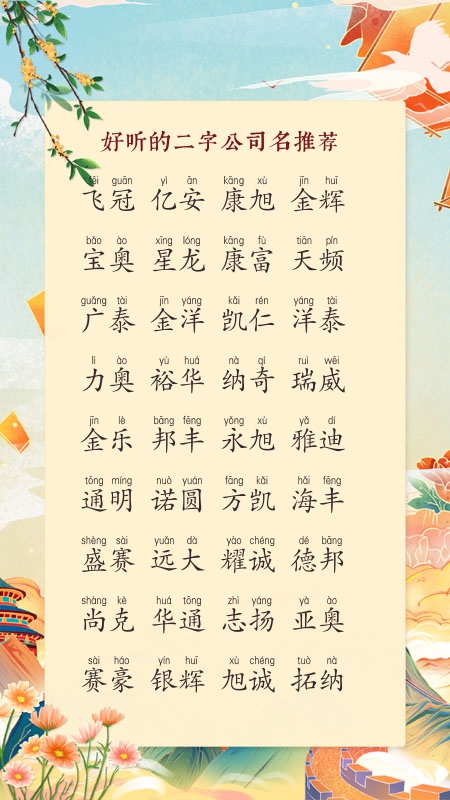 好听的二字公司名推荐
fēi guān yì ān kāng xù jīn huī
飞冠 亿安 康旭 金辉
bǎo ào xīng lóng kāng fù tiān pín
宝奥 星龙 康富 天频
guǎng tài jīn yáng kǎi rén yáng tài
广泰 金洋 凯仁 洋泰
lì ào yù huá nà qí ruì wēi
力奥 裕华 纳奇 瑞威
jīn lè bāng fēng yǒng xù yǎ dí
金乐 邦丰 永旭 雅迪
tōng míng nuò yuán fāng kǎi hǎi fēng
通明 诺圆 方凯 海丰
shèng sài yuǎn dà yào chéng dé bāng
盛赛 远大 耀诚 德邦
shàng kè huá tōng zhì yáng yà ào
尚克 华通 志扬 亚奥
sài háo yín huī xù chéng tuò nà
赛豪 银辉 旭诚 拓纳